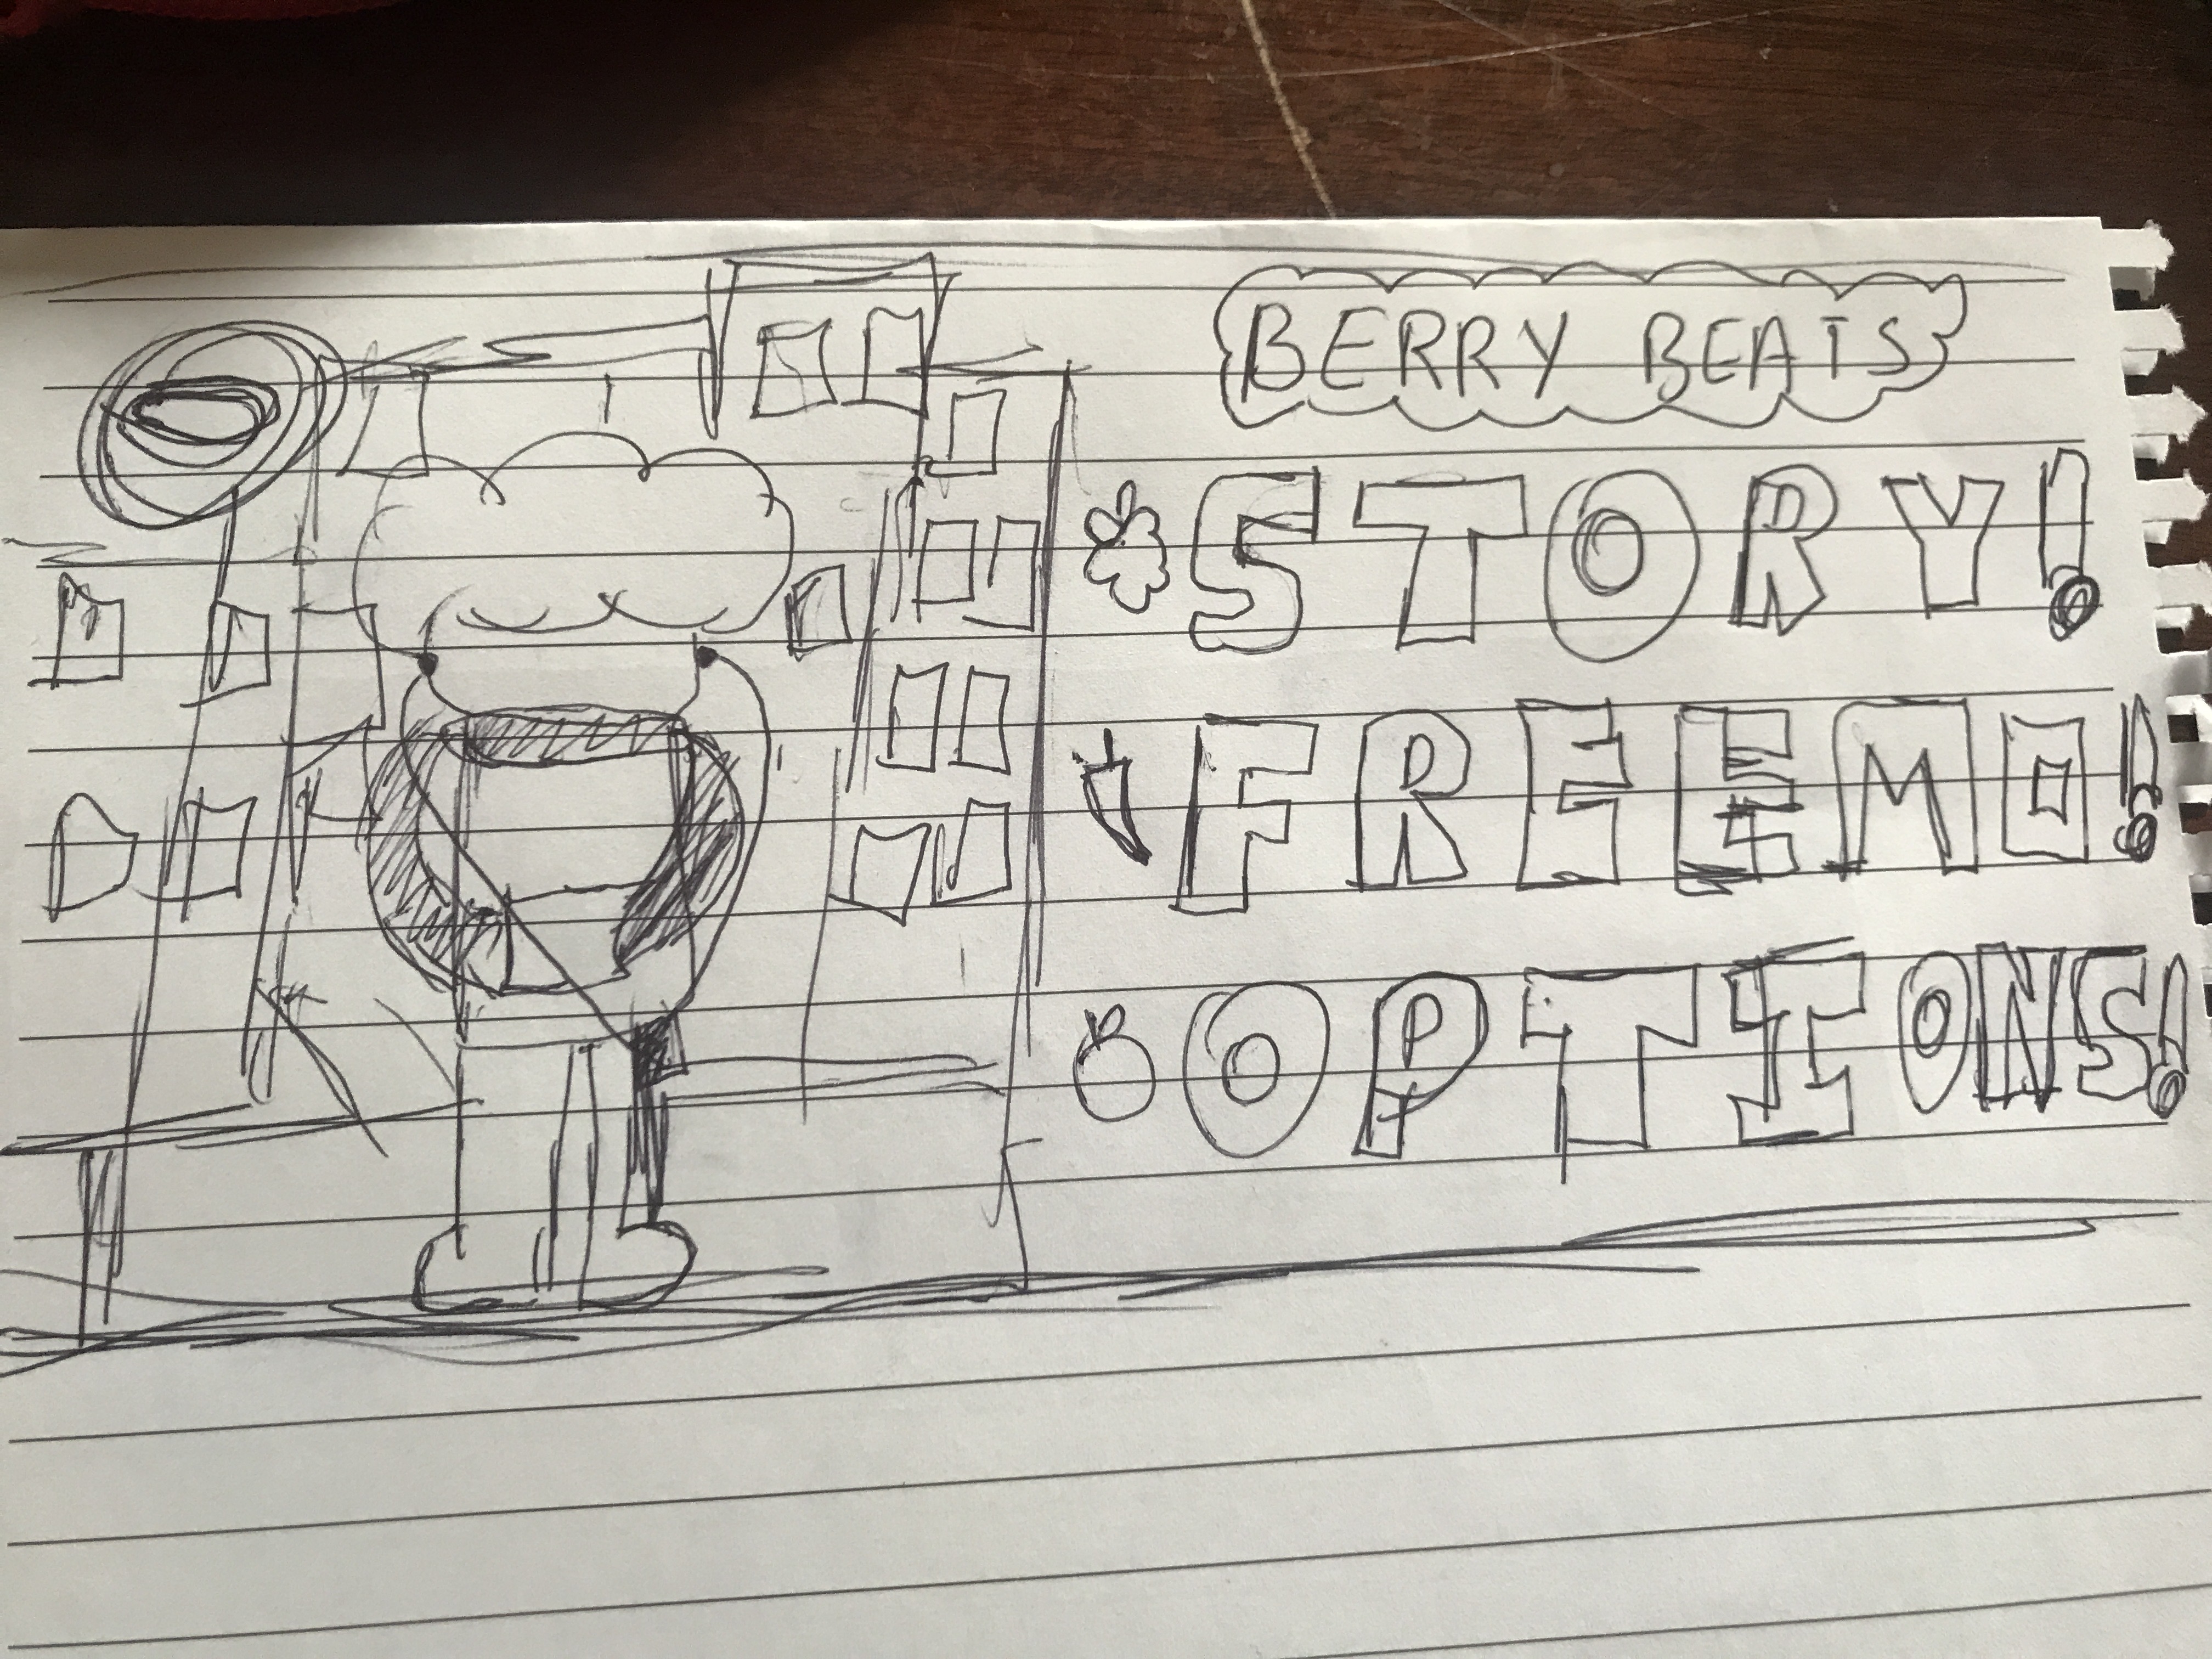 BERRY BEATS
STORY!
FREEMO!
OPTIONS!